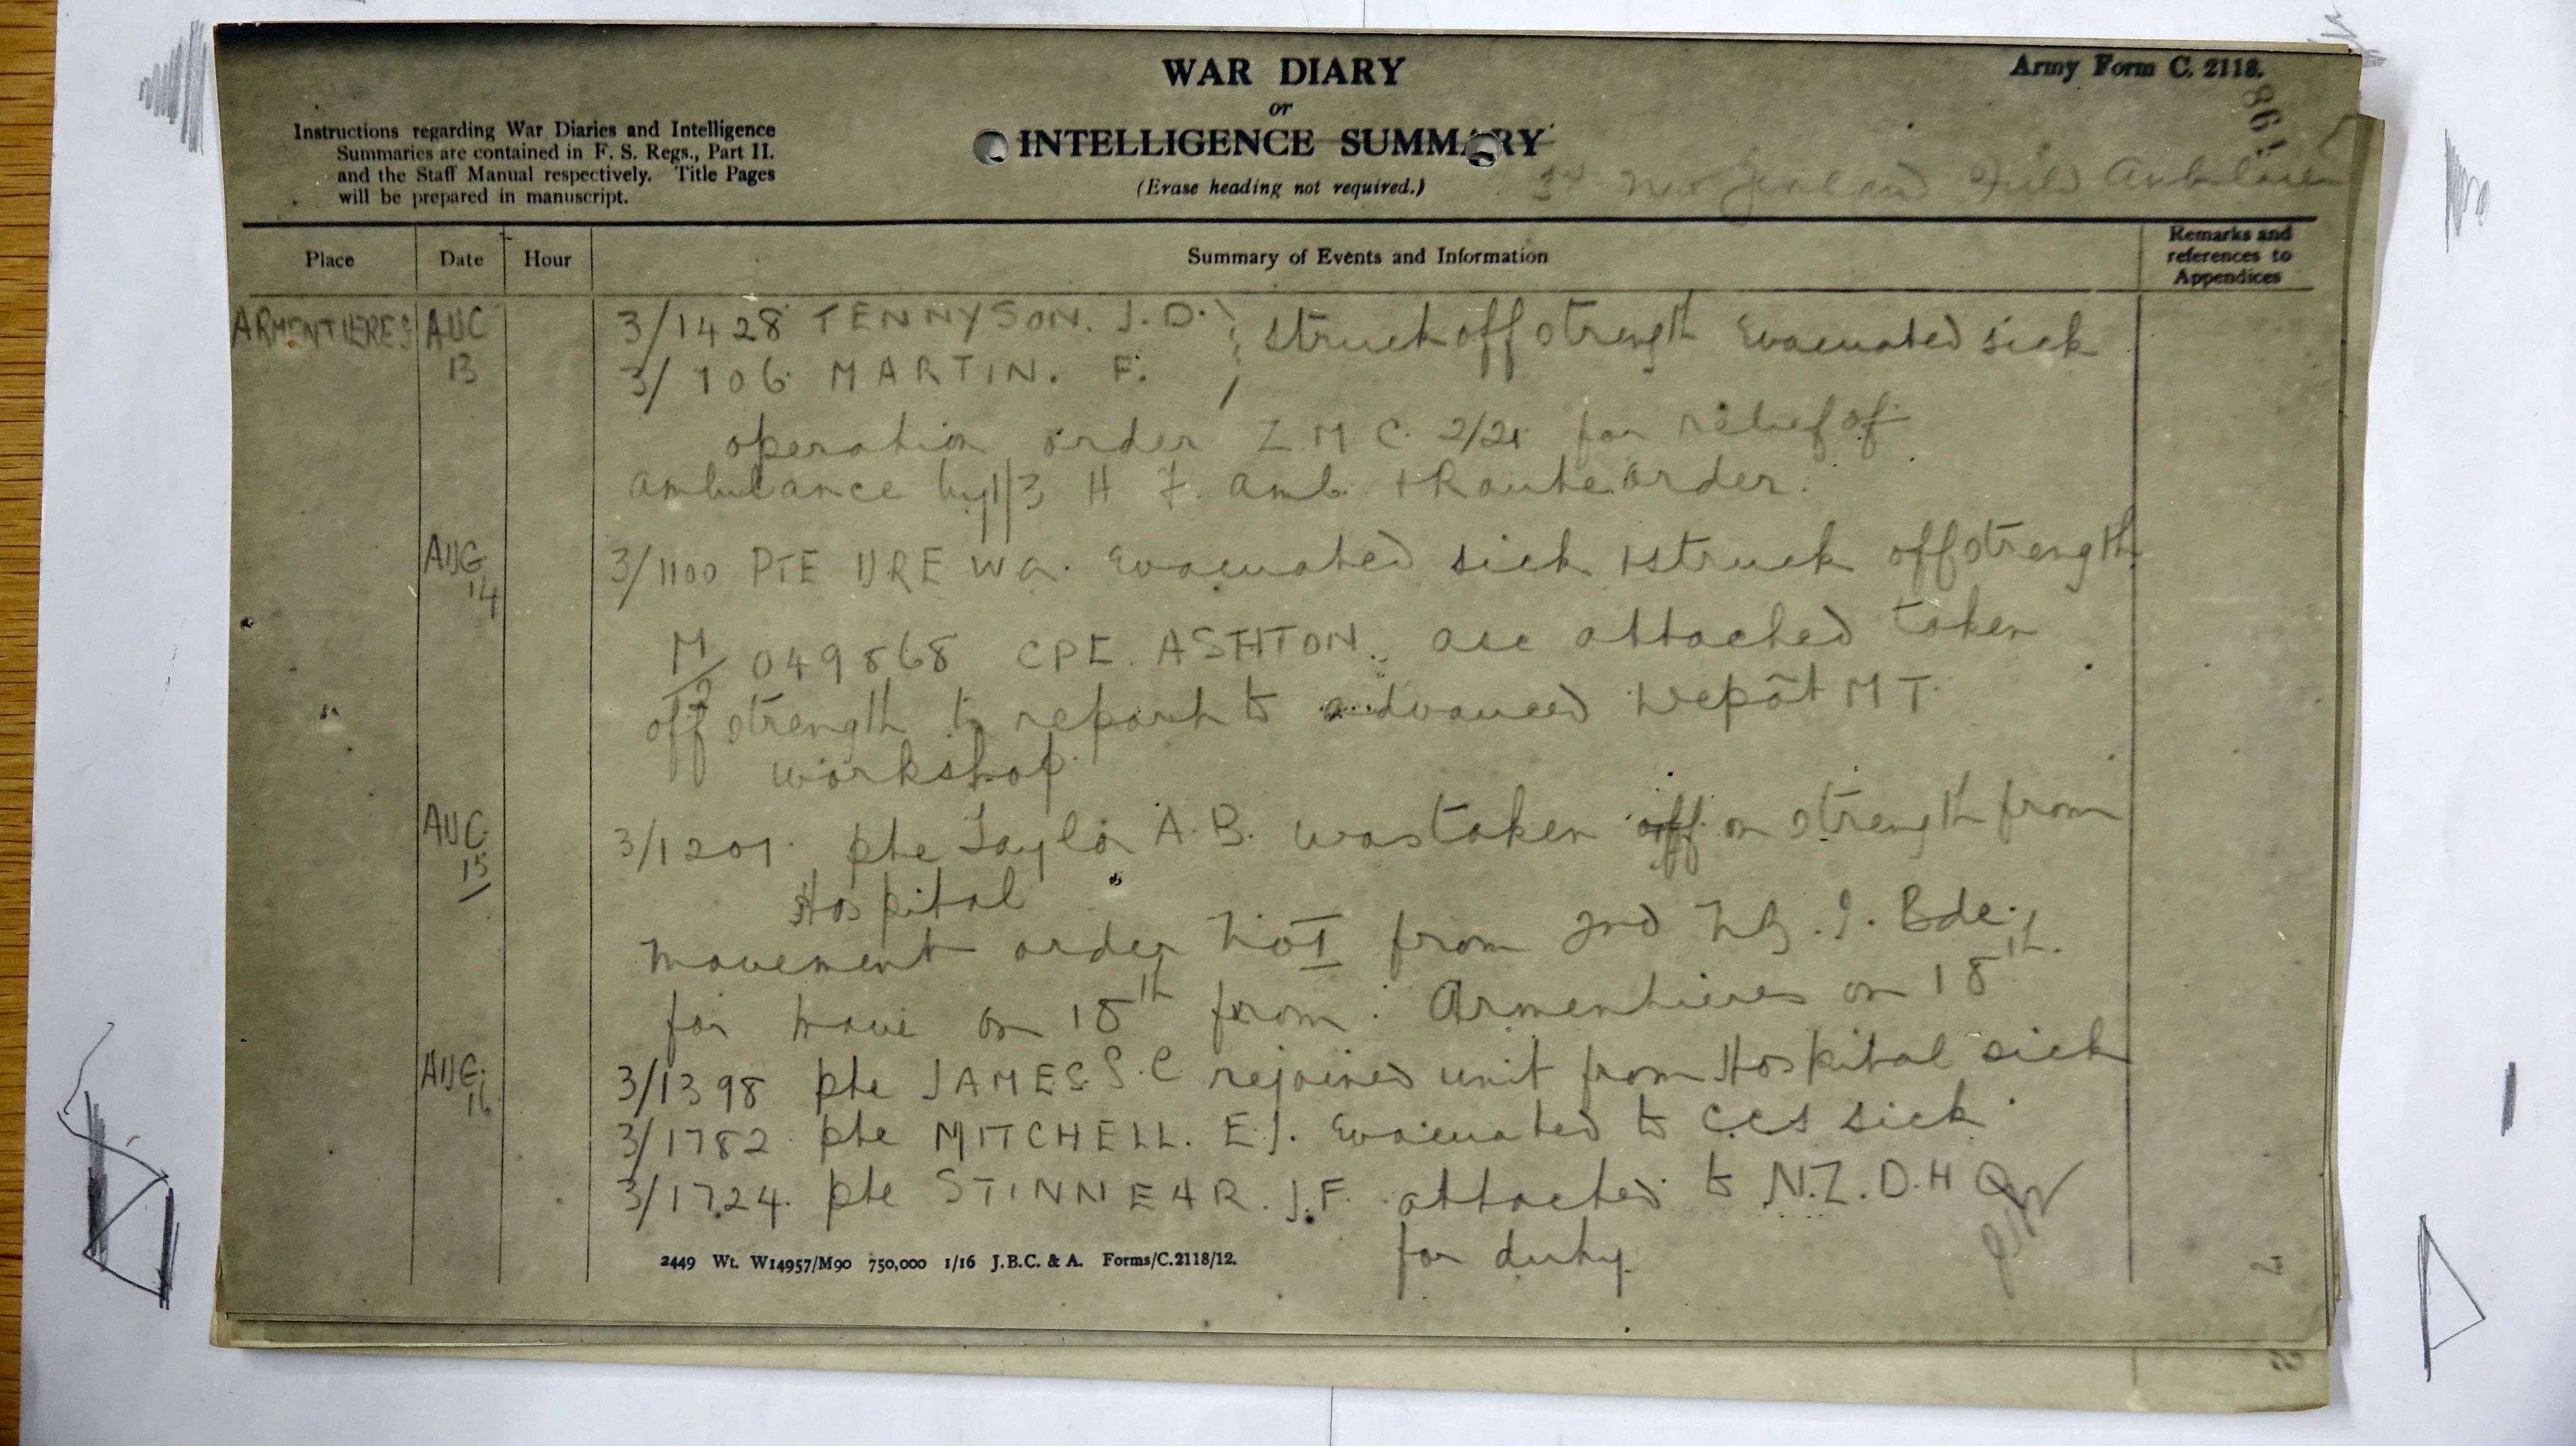 WAR DIARY
or
INTELLIGENCE SUMMARY
(Erase heading not required.)
Army Form C. 2118.
Instructions regarding War Diaries and Intelligence
Summaries are contained in F. S. Regs., Part II.
and the Staff Manual respectively. Title Pages
will be prepared in manuscript.
New Zealand Field Ambulance
Place Date Hour Summary of Events and Information Remarks and
references to
Appendices
ARMENTIERES AUG 13 3/1428 TENNYSON. J. D. } struck off strength Evacuated sick
3/706 MARTIN. F.
operation order Z.M.C. 2/21 for relief of
ambulance by 1/3 H F. Amb. + Route order.
AUG 14 3/1100 PTE URE W a. Evacuated sick + struck off strength
M/2 049868 CPL. ASHTON. asc attached taken
off strength to report to advanced Depôt M T.
workshop
AUG 15 3/1201. pte Taylor A. B. was taken off on strength from
Hospital
Movement order No 1 from 2nd N.Z. I. Bde.
for move on 18th from Armentieres on 18th.
AUG. 16 3/1398 pte JAMES S. C rejoined unit from Hospital sick
3/1782 pte MITCHELL. E J. Evacuated to C.C.S sick
3/1724. pte STINNEAR. J. F. attached to N.Z. D. H Q
for duty.
2449 Wt. W14957/M90 750,000 1/16 J.B.C. & A. Forms/C.2118/12.